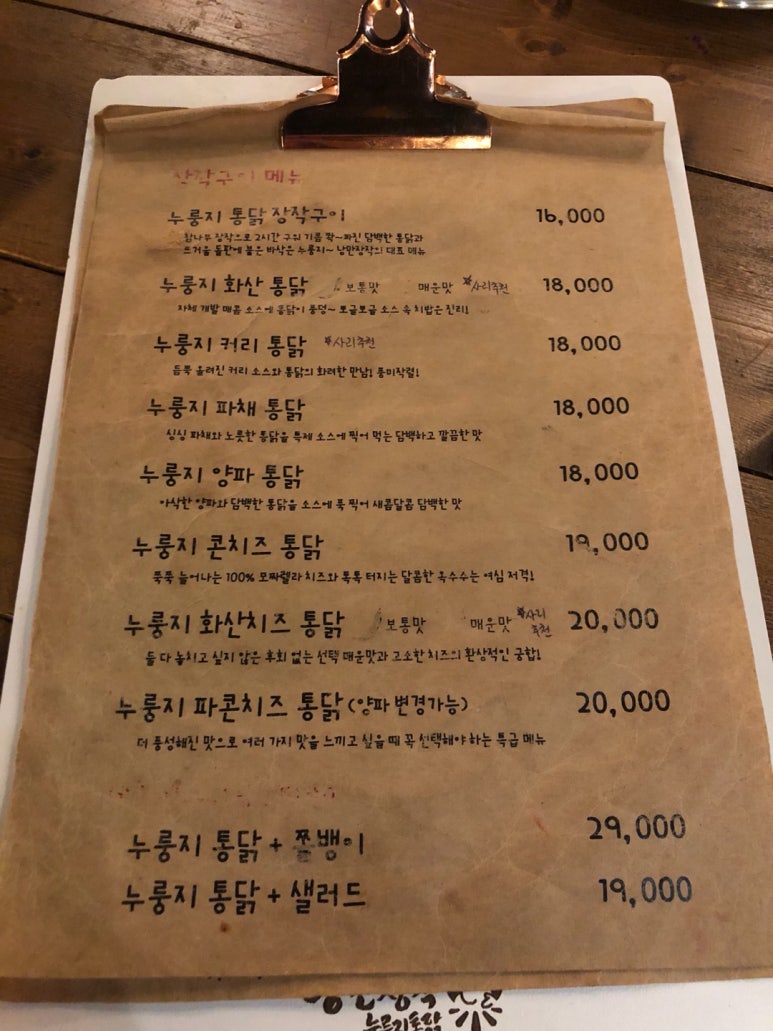 장작구이 메뉴
누룽지 통닭 장작구이 16,000
참나무 장작으로 2시간 구워 기름 쫙~빠진 담백한 통닭과
뜨거울 돌판에 붙은 바삭은 누룽지~ 낭만장작의 대표 메뉴
누룽지 화산 통닭 보통맛 매운맛 *사리추천 18,000
자체 개발 매콤 소스에 통닭이 퐁덩~ 보글보글 소스 속 치밥은 진리!
누룽지 커리 통닭 *사리추천 18,000
듬뿍 올려진 커리 소스와 통닭의 화려한 만남! 풍미작렬!
누룽지 파채 통닭 18,000
싱싱 파채와 노릇한 통닭을 특제 소스에 찍어 먹는 담백하고 깔끔한 맛
누룽지 양파 통닭 18,000
아삭한 양파와 담백한 통닭을 소스에 푹 찍어 새콤달콤 담백한 맛
누룽지 콘치즈 통닭 19,000
쭉쭉 늘어나는 100% 모짜렐라 치즈와 톡톡 터지는 달콤한 옥수수는 여심 저격!
누룽지 화산치즈 통닭 보통맛 매운맛 *사리추천 20,000
둘 다 놓치고 싶지 않은 후회 없는 선택 매운맛과 고소한 치즈의 환상적인 궁합!
누룽지 파콘치즈 통닭(양파 변경가능) 20,000
더 풍성해진 맛으로 여러 가지 맛을 느끼고 싶을 때 꼭 선택해야 하는 특급 메뉴
누룽지 통닭 + 쫄뱅이 29,000
누룽지 통닭 + 샐러드 19,000
누룽지통닭